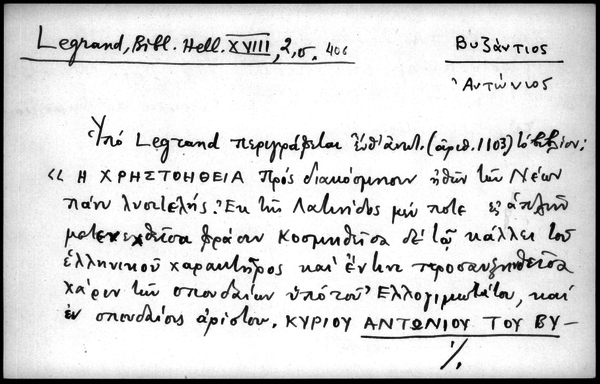 Legrand, Bibl. Hell. XVIII, 2, σ. 406
Βυζάντιος
Ἀντώνιος
Ὑπό Legrand περιγράφεται ἐνθ' ἀνωτ. (ἀριθ. 1103) τό βιβλίον:
« Η ΧΡΗΣΤΟΗΘΕΙΑ πρός διακόσμησιν ἠθῶν τῶν Νέων
πάνυ λυσιτελής. Ἐκ τῆς Λατινίδος μέν ποτε εἰς ἁπλῆν
μετενεχθεῖσα φράσιν κοσμηθεῖσα δέ τῷ κάλλει τοῦ
ἑλληνικοῦ χαρακτῆρος καί ἔν τισι προσαυξηθεῖσα
χάριν τῶν σπουδαίων ὑπό τοῦ Ἐλλογιμωτάτου, καί
ἐν σπουδαίοις ἀρίστου. ΚΥΡΙΟΥ ΑΝΤΩΝΙΟΥ ΤΟΥ ΒΥ–
·/.